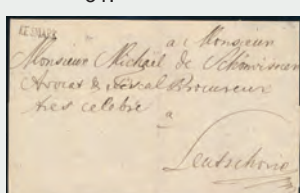 KESMARK
a Monsieur
Monsieur Michael de
Avocat & Fiscal Procureur
tres celebre
a
Leutschovie